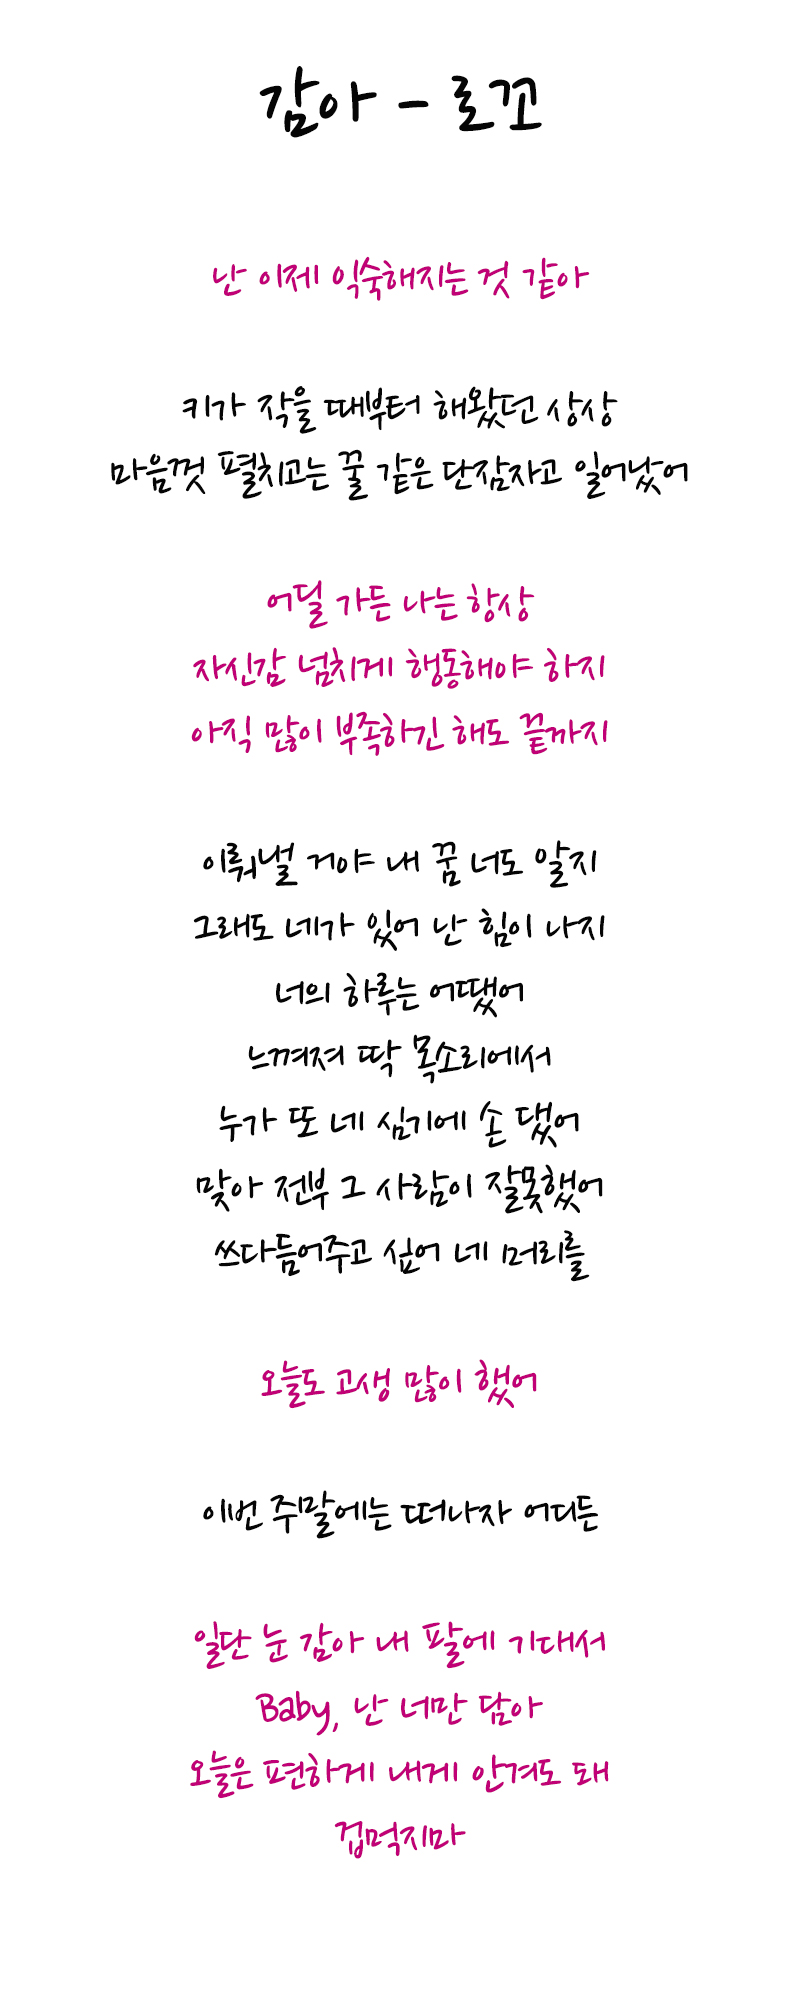 감아 - 로꼬
난 이제 익숙해지는 것 같아
키가 작을 때부터 해왔던 상상
마음껏 펼치고는 꿀 같은 단잠자고 일어났어
어딜 가든 나는 항상
자신감 넘치게 행동해야 하지
아직 많이 부족하긴 해도 끝까지
이뤄낼 거야 내 꿈 너도 알지
그래도 네가 있어 난 힘이 나지
너의 하루는 어땠어
느껴져 딱 목소리에서
누가 또 네 심기에 손 댔어
맞아 전부 그 사람이 잘못했어
쓰다듬어주고 싶어 네 머리를
오늘도 고생 많이 했어
이번 주말에는 떠나자 어디든
일단 눈 감아 내 팔에 기대서
Baby, 난 너만 담아
오늘은 편하게 내게 안겨도 돼
겁먹지마